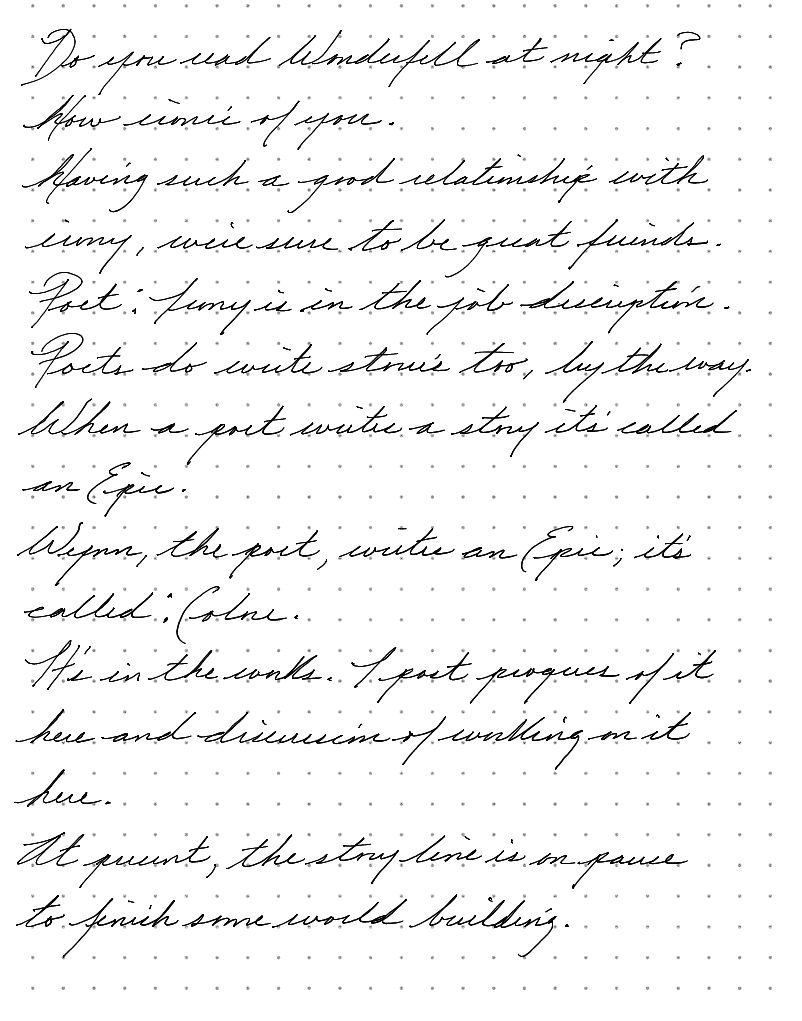 Do you read Wonderfell at night?
How ironic of you.
Having such a good relationship with
irony, we're sure to be great friends.
Poet: Irony is in the job description.
Poets do write stories too, by the way.
When a poet writes a story it's called
an Epic.
Wynn, the poet, writes an Epic; it's
called: Colne.
It's in the works. I post progress of it
here and discussion of working on it
here.
At present, the story line is on pause
to finish some world building.